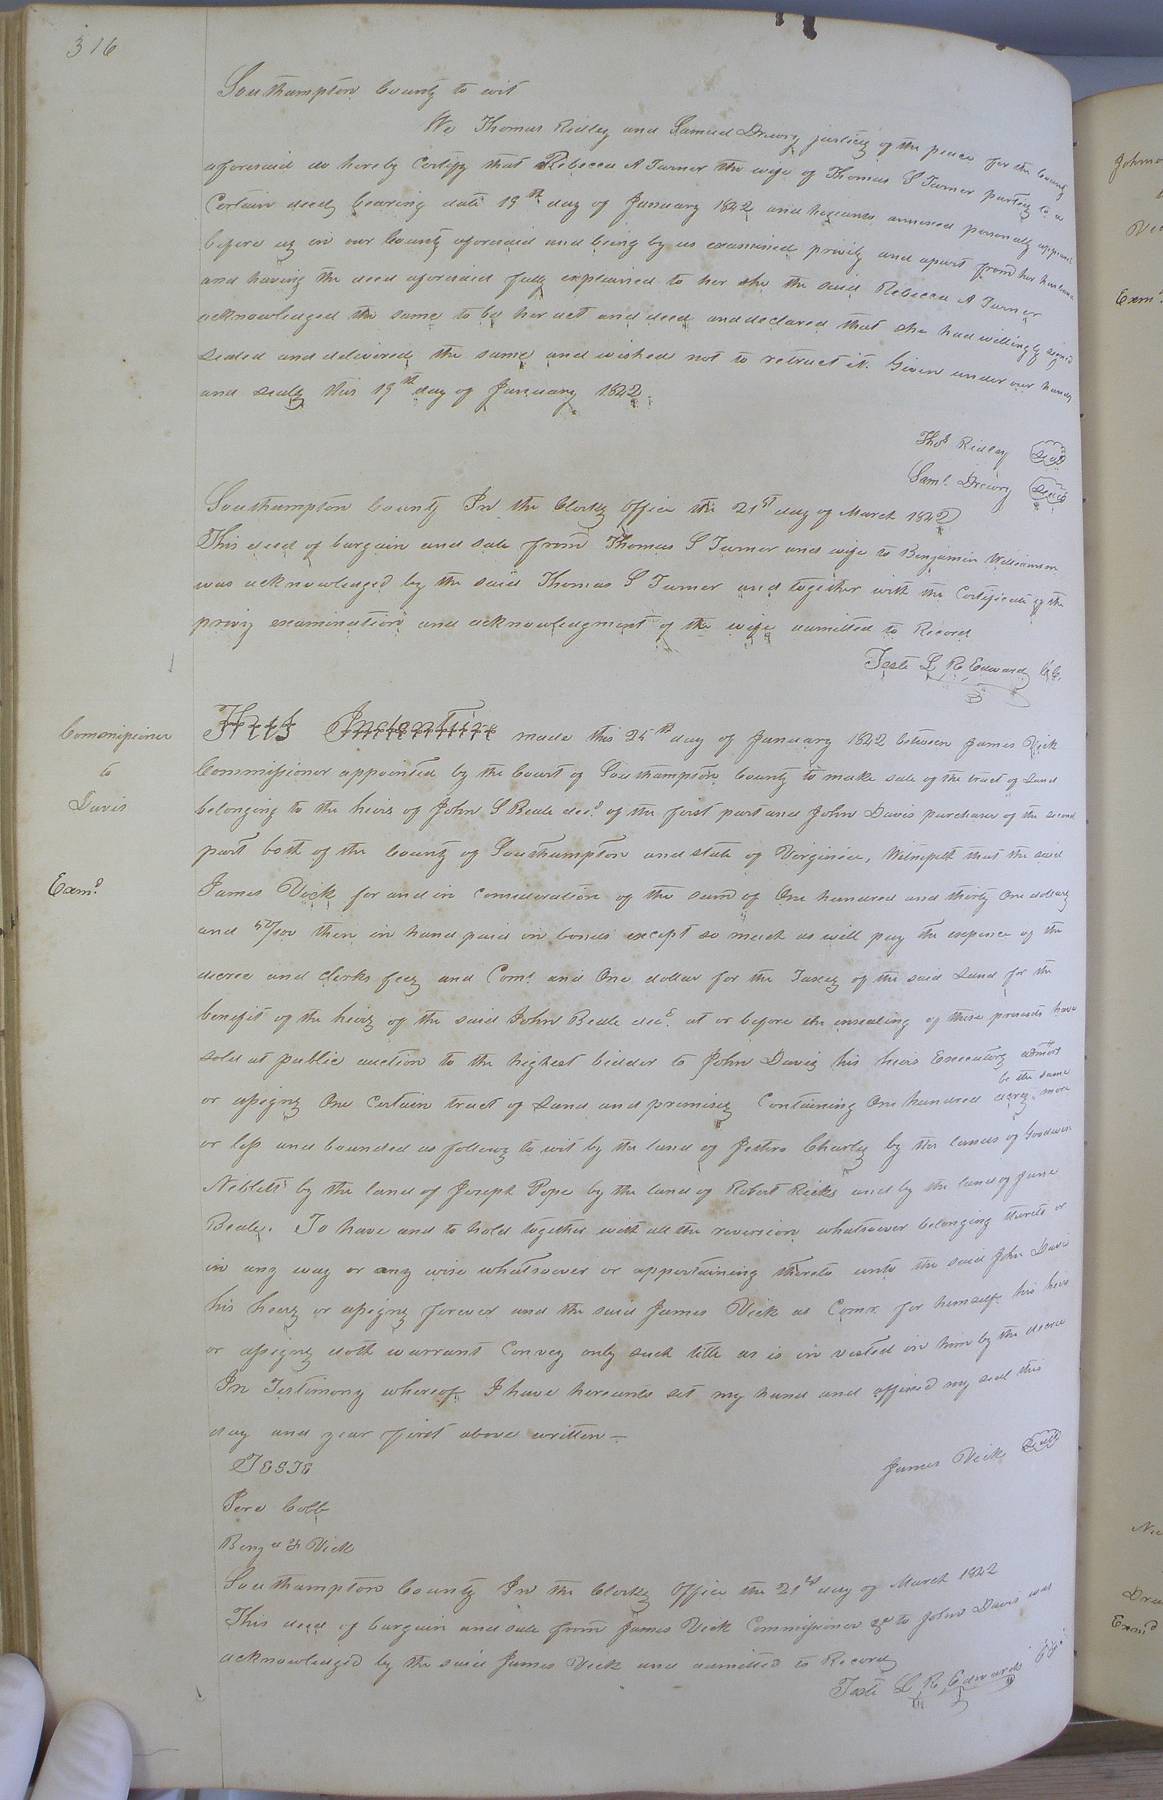 316
Southampton County to wit
We Thomas Ridley and Samuel Drewry justices of the peace for the County
aforesaid do hereby Certify that Rebecca A Turner the wife of Thomas S Turner parties to a
Certain deed bearing date 19th day of January 1842 and hereunto annexed personally appeared
before us in our County aforesaid and being by us examined privily and apart from her husband
and having the deed aforesaid fully explained to her she the said Rebecca A Turner
acknowledged the same to be her act and deed and declared that she had willingly signed
sealed and delivered the same and wished not to retract it. Given under our hands
and seals this 19th day of January 1842.
Thos Ridley Seal
Saml. Drewry Seal
Southampton County In the Clerks Office the 21st day of March 1842
This deed of bargain and sale from Thomas S Turner and wife to Benjamin Williamson
was acknowledged by the said Thomas S Turner and together with the Certificate of the
privy examination and acknowledgment of the wife admitted to Record
Teste L R Edwards CC.
Commissioner
to
Davis
Examd
This Indenture made this 25th day of January 1842 between James Vick
Commissioner appointed by the Court of Southampton County to make sale of the tract of Land
belonging to the heirs of John S Beale decd of the first part and John Davis purchaser of the second
part both of the County of Southampton and state of Virginia, Witnesseth that the said
James Vick for and in Consideration of the sum of One hundred and thirty One dollars
and 50/100 then in hand paid in bonds except so much as will pay the expence of the
decree and Clerks fees and Coms and One dollar for the Taxes of the said Land for the
benefit of the heirs of the said John Beale decd. at or before the ensealing of these presents have
sold at public auction to the highest bidder to John Davis his heirs Executors admors
or assigns One Certain tract of Land and premises Containing One hundred acres be the same more
or less and bounded as follows to wit by the land of Jethro Charles by the lands of Goodwin
Nibletts by the land of Joseph Pope by the land of Robert Ricks and by the land of Jane
Beale. To have and to hold together with all the reversion whatsoever belonging thereto or
in any way or any wise whatsoever or appertaining thereto unto the said John Davis
his heirs or assigns forever and the said James Vick as Comr. for himself his heirs
or assigns doth warrant Convey only such title as is in vested in him by the decree
In Testimony whereof I have hereunto set my hand and affixed my seal this
day and year first above written—
James Vick Seal
TESTE
Pere Cobb
Benja F Vick
Southampton County In the Clerks Office the 21st day of March 1842
This deed of bargain and sale from James Vick Commissioner &c to John Davis was
acknowledged by the said James Vick and admitted to Record
Teste L R Edwards CC.